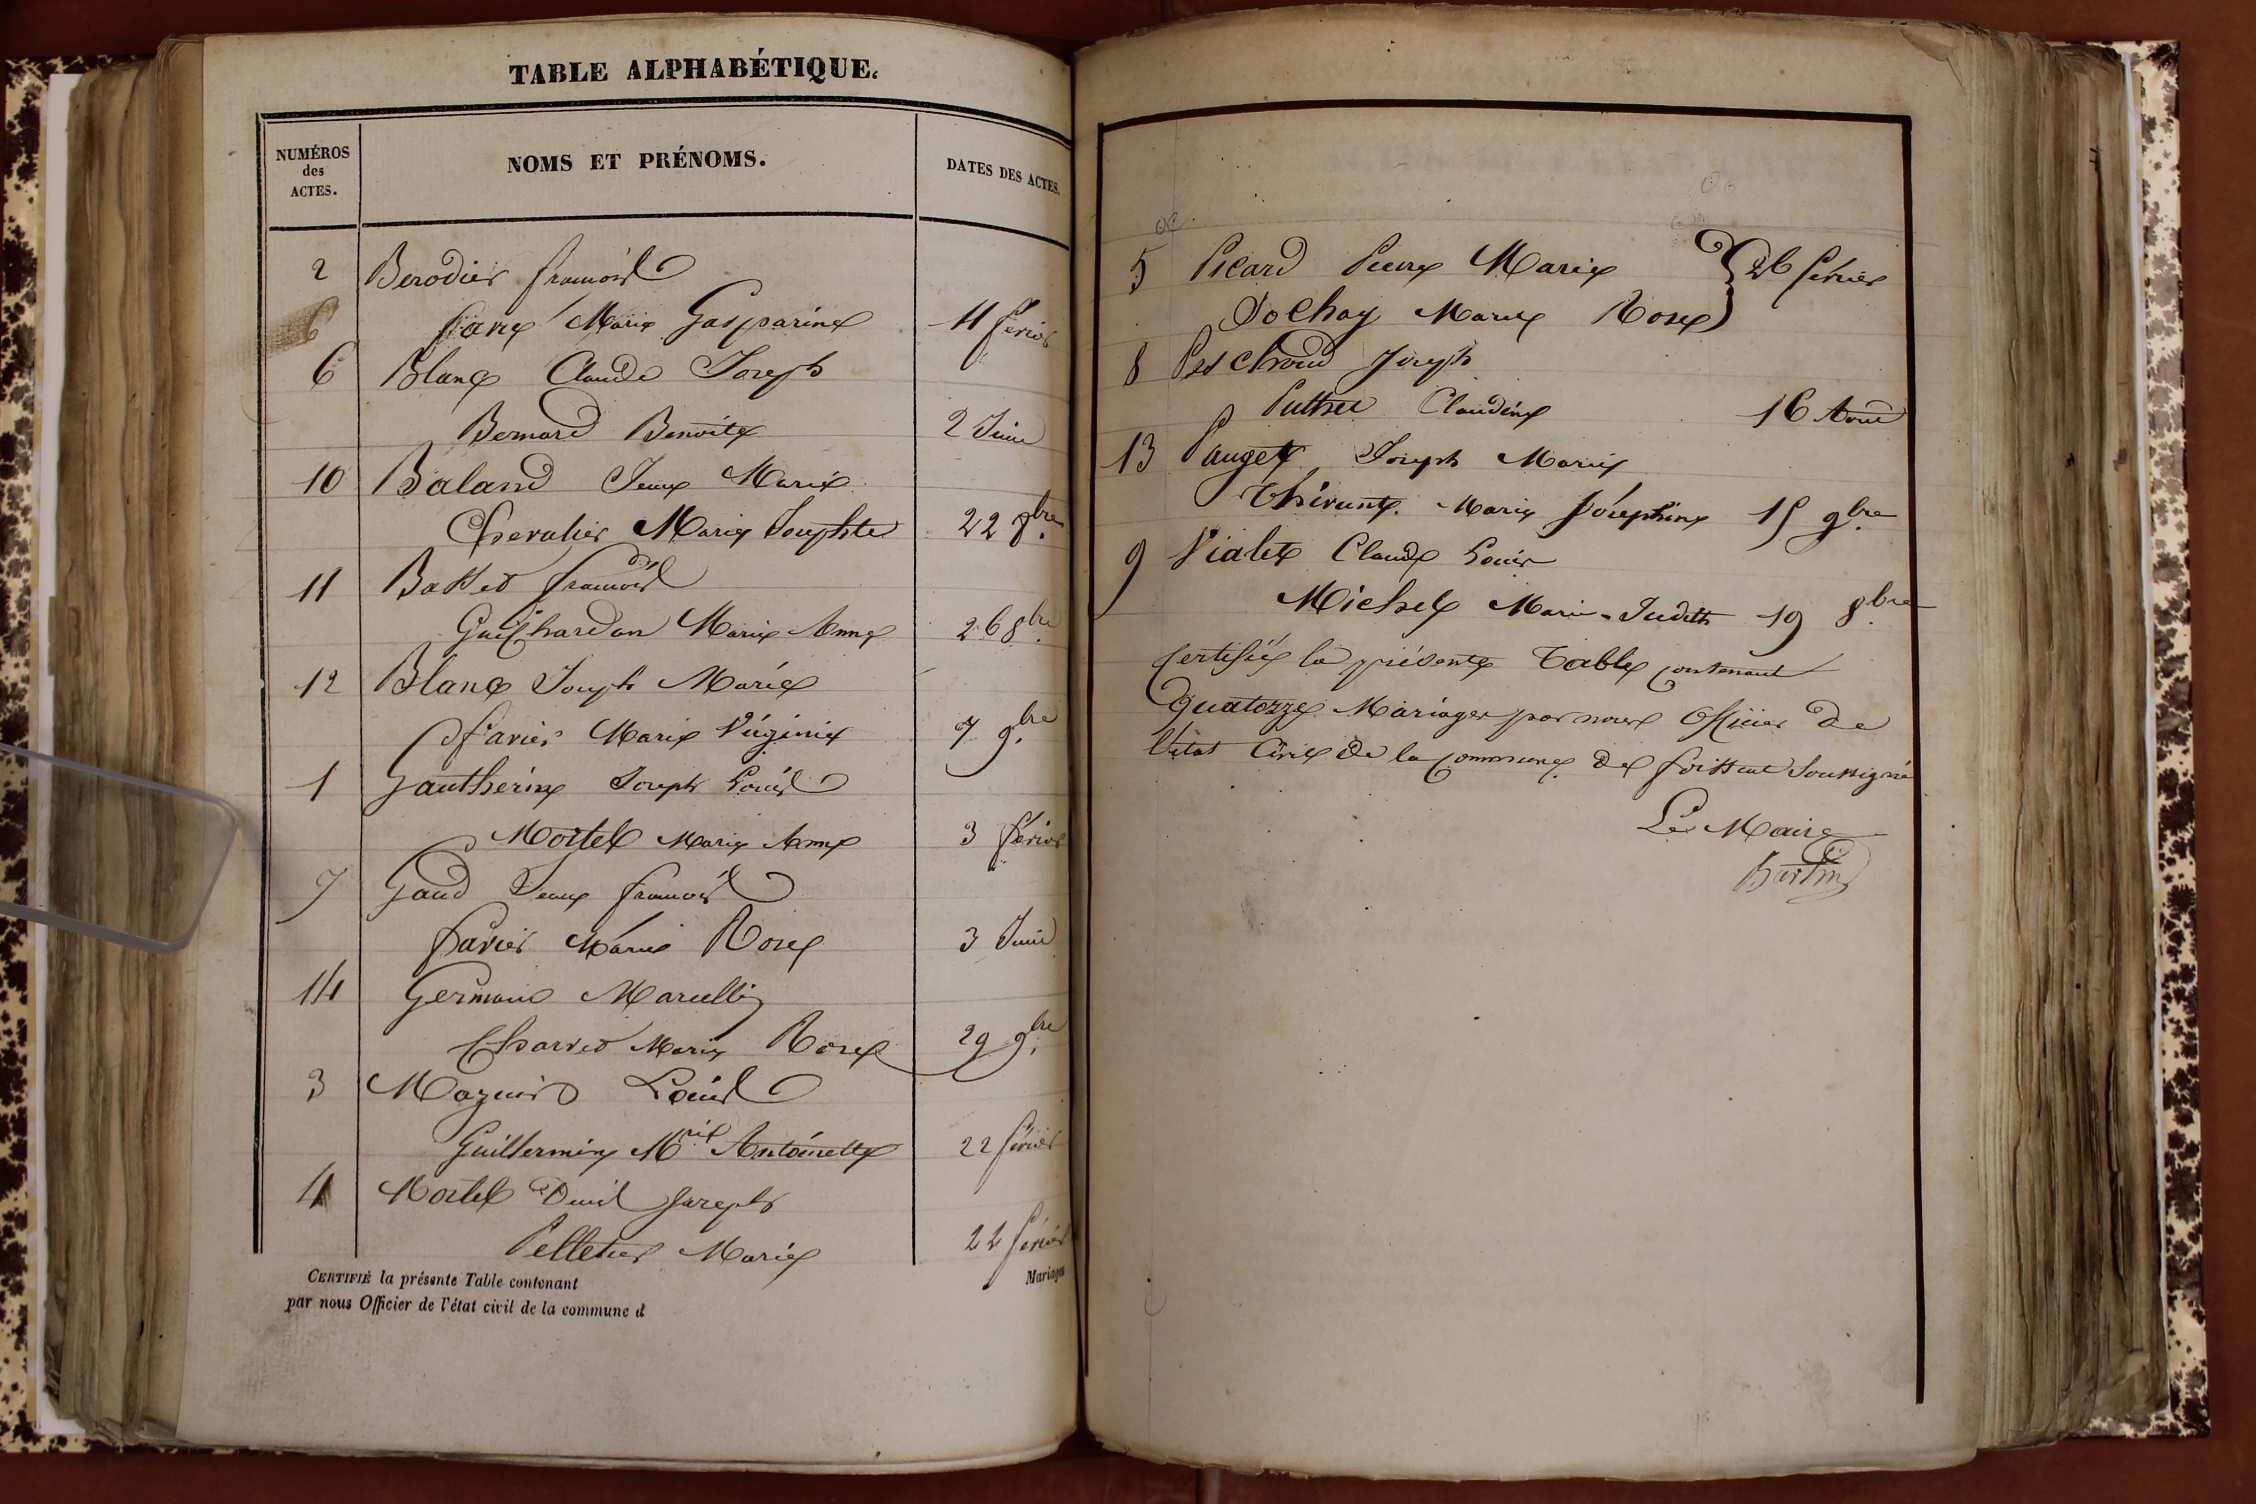 TABLE ALPHABÉTIQUE.
NUMÉROS des ACTES.
NOMS ET PRÉNOMS.
DATES DES ACTES.
2 Berodier françois
favre Marie Gasparine 11 février
6 Blanc Claude Joseph
Bernard Benoite 2 Juin
10 Baland Jean Marie
Chevalier Marie Josephte 22 8bre
11 Basset françois
Guichardon Marie Anne 26 8bre
12 Blanc Joseph Marie
favier Marie Virginie 7 9bre
1 Gautherin Joseph Louis
Moitel Marie Anne 3 février
7 Gaud Jean françois
favier Marie Rose 3 Juin
14 Germain Marcellin
Charvet Marie Rose 29 9bre
3 Mazuir Louis
Guillermin Mrie Antoinette 22 février
4 Moitel Denis Joseph
Pelletier Marie 22 février
CERTIFIÉ la présente Table contenant Mariages
par nous Officier de l'état civil de la commune d
5 Picard Pierre Marie 26 février
Dochay Marie Rose
8 Joseph
Puthet Claudine 16 Aout
13 Pauget Joseph Marie
Marie Joséphine 15 9bre
9 Vialet Claude Louis
Michel Marie-Judith 19 8bre
Certifiée la présente Table contenant
Quatorze Mariages par nous Officier de
l'état Civil de la commune de foissiat Soussigné
Le Maire